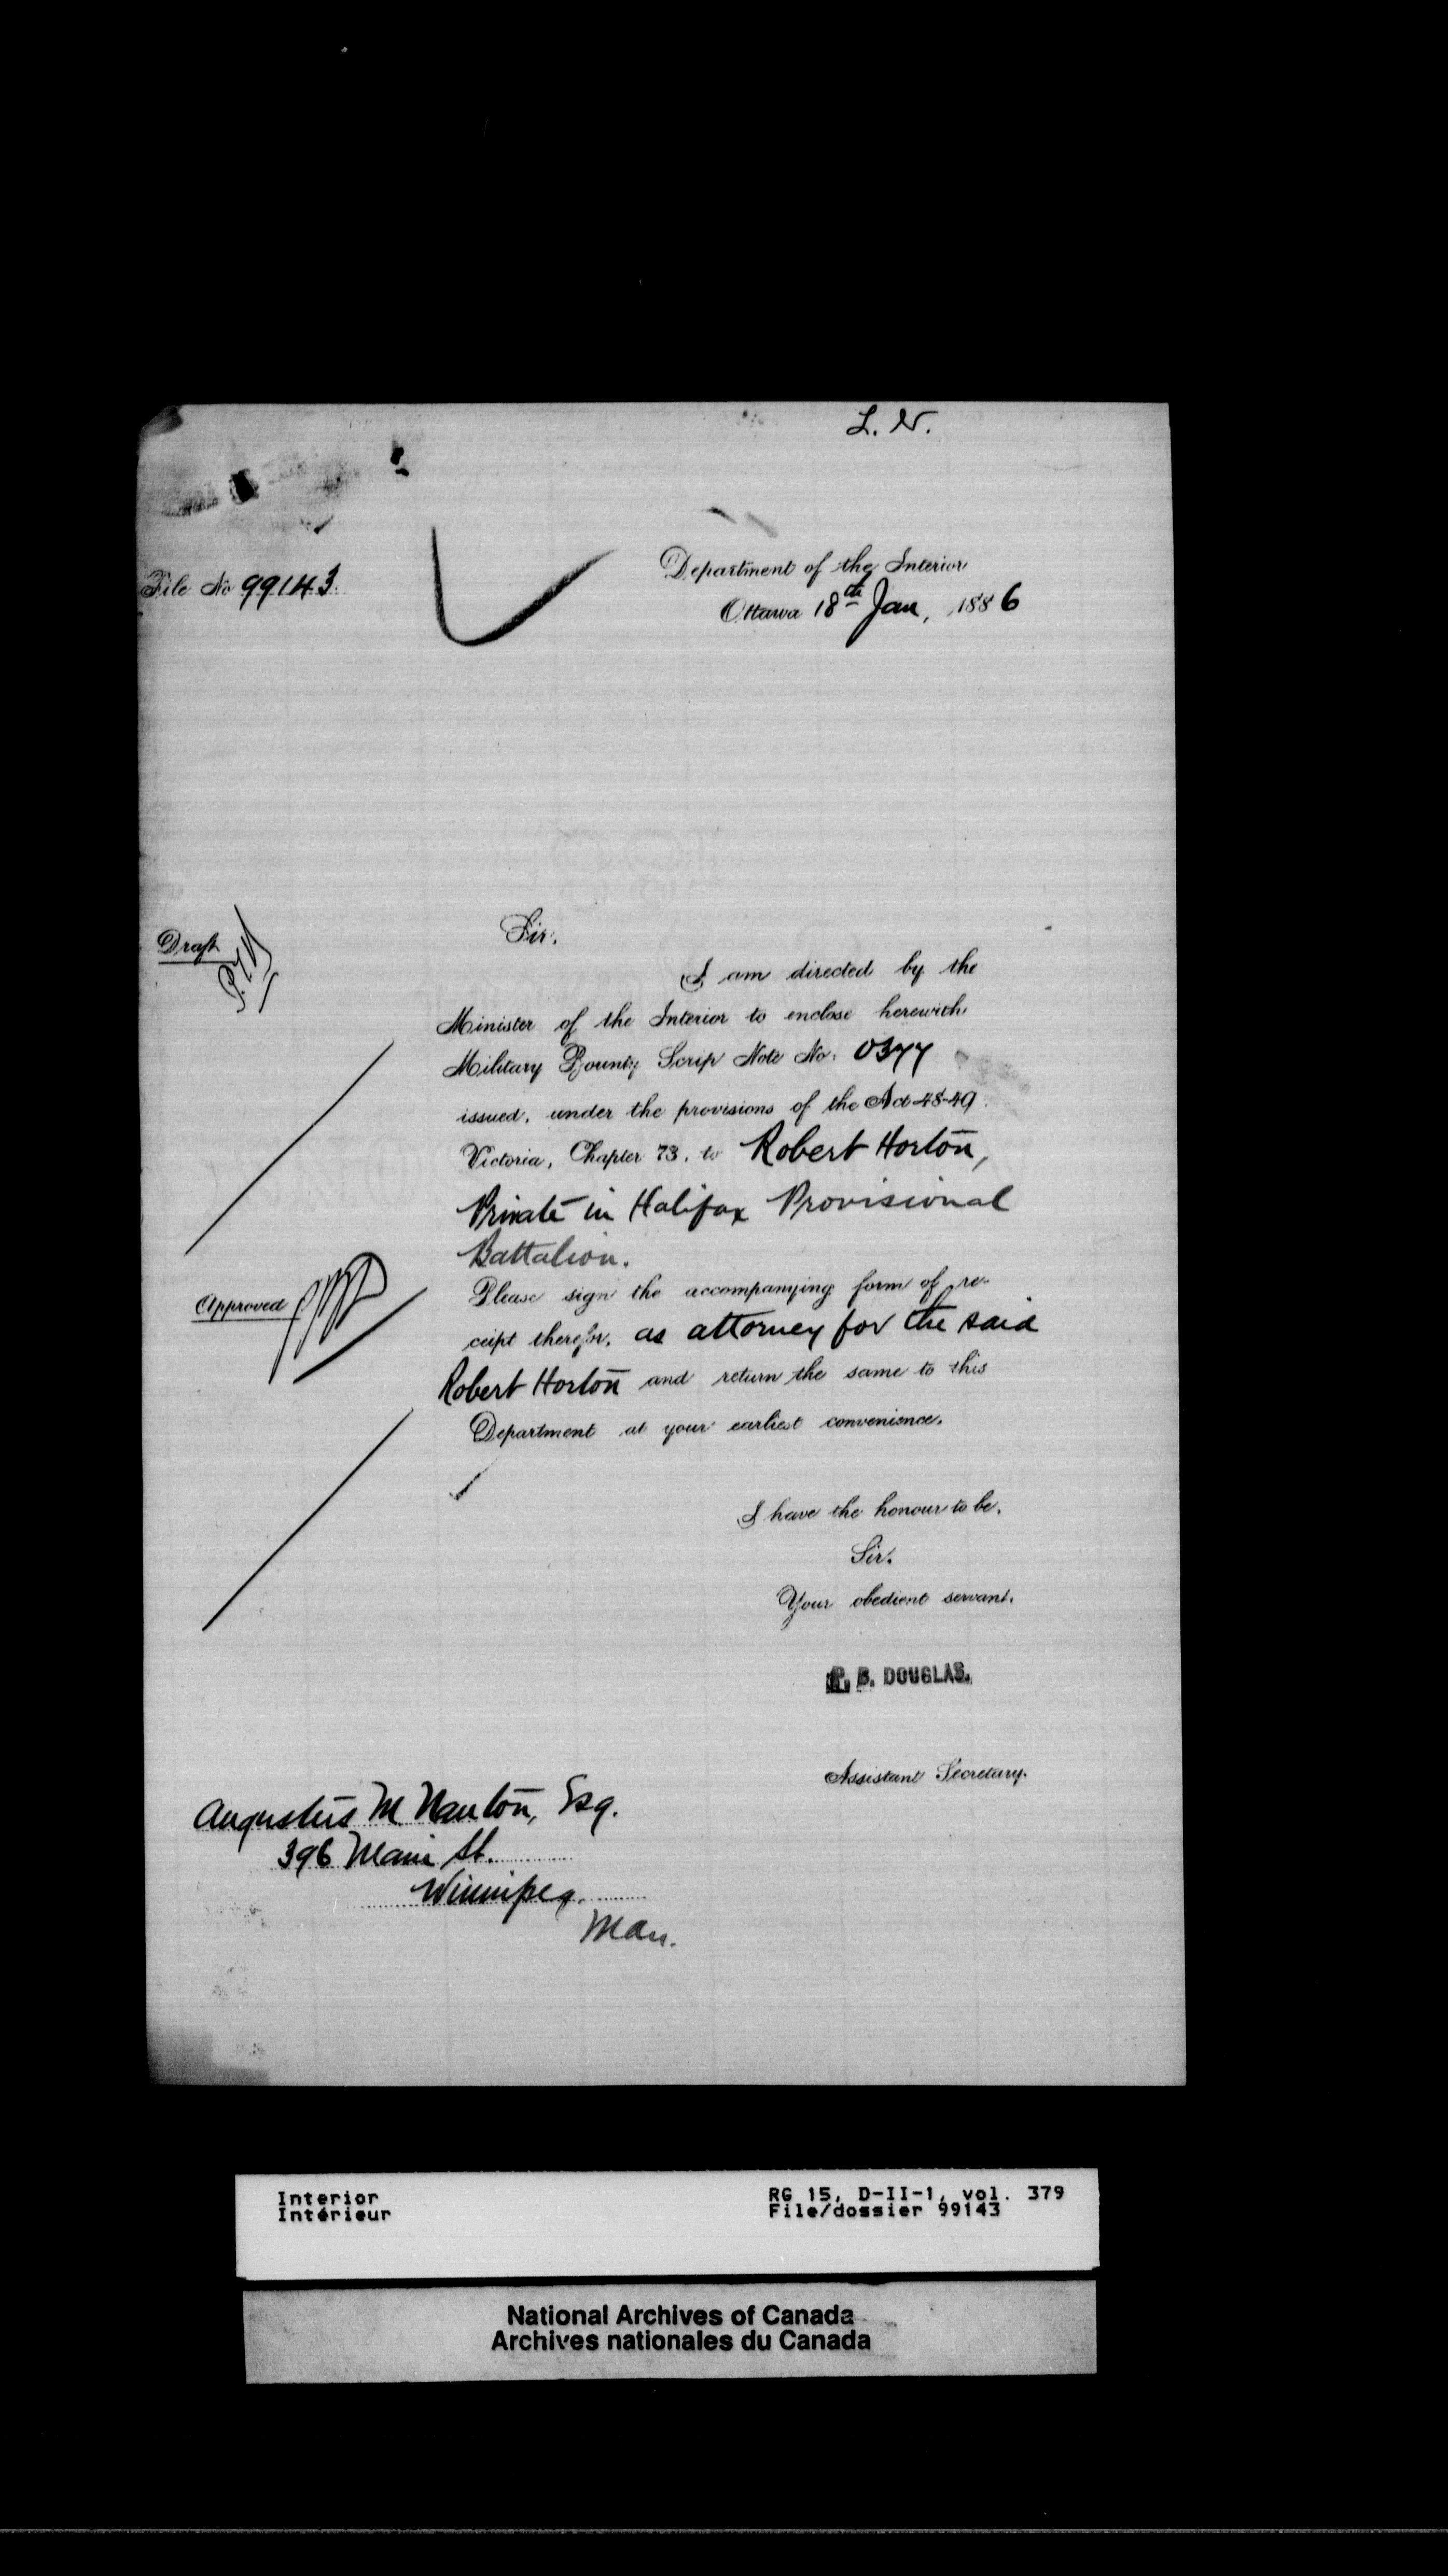 L. N.
File No 99143.
Department of the Interior
Ottawa 18th Jan, 1886
Draft
Sir,
I am directed by the
Minister of the Interior to enclose herewith
Military Bounty Scrip Note No. 0377
issued, under the provisions of the Act 48-49
Victoria, Chapter 73, to Robert Horton,
Private in Halifax Provisional
Battalion.
Approved
Please sign the accompanying form of re-
ceipt therefor, as attorney for the said
Robert Horton and return the same to this
Department at your earliest convenience.
I have the honour to be,
Sir,
Your obedient servant,
P. B. DOUGLAS.
Assistant Secretary.
Augustus M Nanton, Esq.
396 Main St.
Winnipeg.
Man.
Interior
Intérieur
RG 15, D-II-1, vol. 379
File/dossier 99143
National Archives of Canada
Archives nationales du Canada